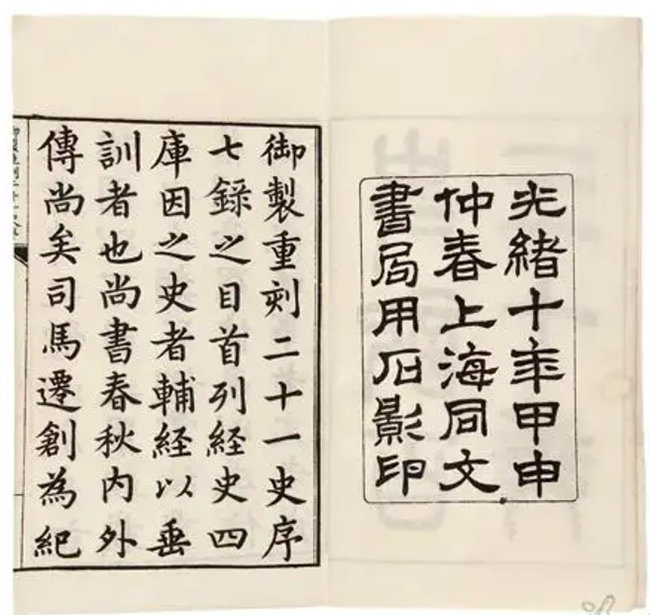 光緒十年甲申
仲春上海同文
書局用石影印
御製重刻二十一史序
七錄之目首列經史四
庫因之史者輔経以垂
訓者也尚書春秋内外
傳尚矣司馬遷創為紀